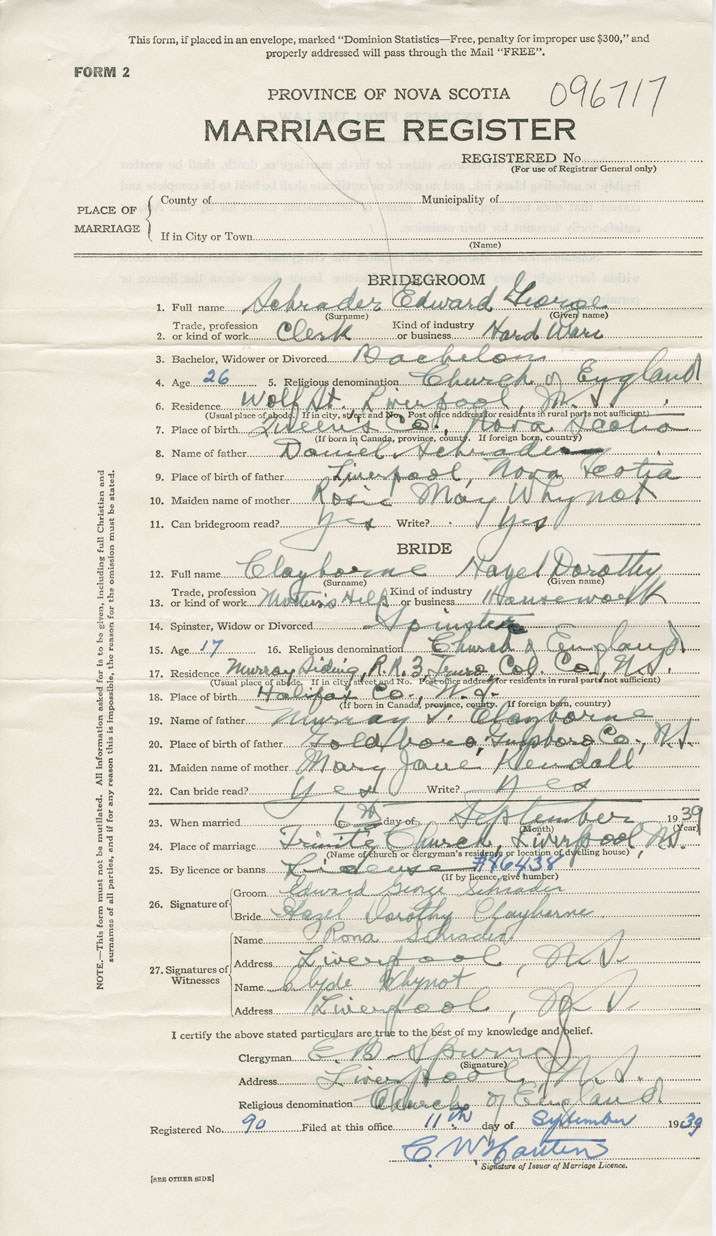 This form, if placed in an envelope, marked "Dominion Statistics—Free, penalty for improper use $300," and
properly addressed will pass through the Mail "FREE".
FORM 2
096717
PROVINCE OF NOVA SCOTIA
MARRIAGE REGISTER
REGISTERED No.
(For use of Registrar General only)
PLACE OF MARRIAGE
County of Municipality of
If in City or Town
(Name)
BRIDEGROOM
1. Full name Schrader Edward George
(Surname) (Given name)
2. Trade, profession or kind of work Clerk Kind of industry or business Hard Ware
3. Bachelor, Widower or Divorced Bachelor
4. Age 26 5. Religious denomination Church of England
6. Residence Wolf St. Liverpool, N.S.
(Usual place of abode. If in city, street and No. Post office address for residents in rural parts not sufficient)
7. Place of birth Queen's Co., Nova Scotia
(If born in Canada, province, county. If foreign born, country)
8. Name of father Daniel Schrader
9. Place of birth of father Liverpool, Nova Scotia
10. Maiden name of mother Rosie May Whynot
11. Can bridegroom read? Yes Write? Yes
BRIDE
12. Full name Clayborne Hazel Dorothy
(Surname) (Given name)
13. Trade, profession or kind of work Mother's Help Kind of industry or business Housework
14. Spinster, Widow or Divorced Spinster
15. Age 17 16. Religious denomination Church of England
17. Residence Murray Siding, R.R.3, Truro, Col. Co., N.S.
(Usual place of abode. If in city street and No. Post office address for residents in rural parts not sufficient)
18. Place of birth Halifax Co., N.S.
(If born in Canada, province, county. If foreign born, country)
19. Name of father Murray Clayborne
20. Place of birth of father Goldboro, Guysboro Co., N.S.
21. Maiden name of mother Mary Jane Kendall
22. Can bride read? Yes Write? Yes
23. When married 6th day of September 1939
(Month) (Year)
24. Place of marriage Trinity Church, Liverpool, N.S.
(Name of church or clergyman's residence or location of dwelling house)
25. By licence or banns License #86438
(If by licence, give number)
26. Signature of
Groom Edward George Schrader
Bride Hazel Dorothy Clayborne
27. Signatures of Witnesses
Name Rona Schrader
Address Liverpool, N.S.
Name Clyde Whynot
Address Liverpool, N.S.
I certify the above stated particulars are true to the best of my knowledge and belief.
Clergyman E B Spurr
(Signature)
Address Liverpool, N.S.
Religious denomination Church of England
Registered No. 90 Filed at this office 11th day of September 1939
Signature of Issuer of Marriage Licence.
[SEE OTHER SIDE]
NOTE.—This form must not be mutilated. All information asked for is to be given, including full Christian and
surnames of all parties, and if for any reason this is impossible, the reason for the omission must be stated.